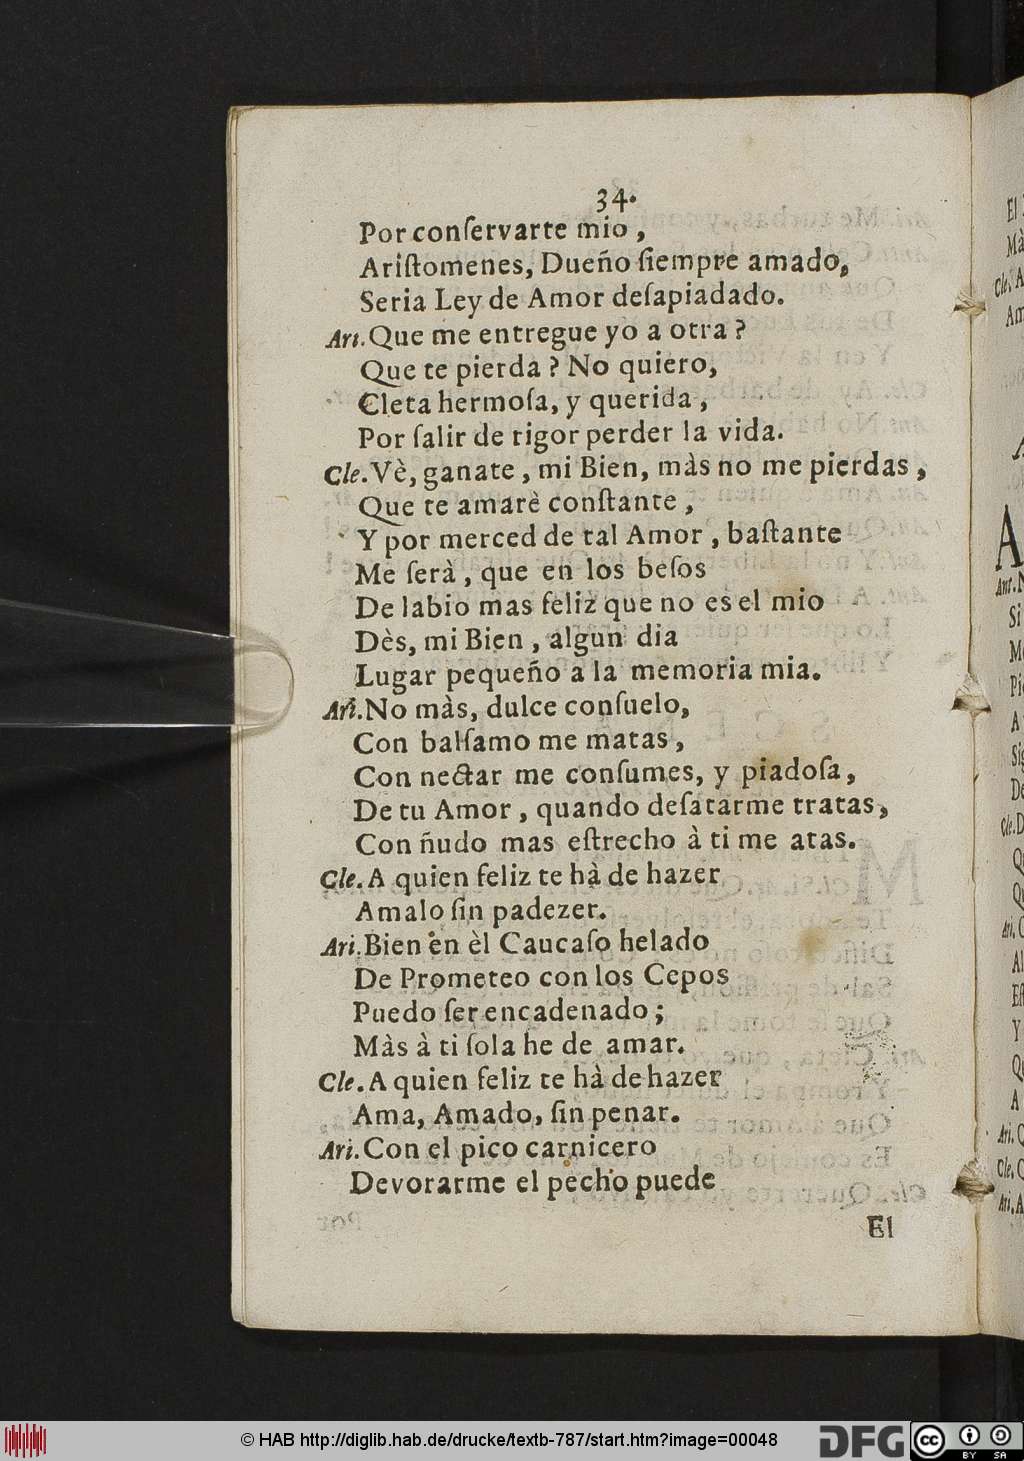 34.
Por conſervarte mio ,
Ariſtomenes, Dueño ſiempre amado,
Seria Ley de Amor deſapiadado.
Ari. Que me entregue yo a otra ?
Que te pierda ? No quiero,
Cleta hermoſa, y querida ,
Por ſalir de rigor perder la vida.
Cle. Vè, ganate , mi Bien, màs no me pierdas ,
Que te amarè conſtante ,
Y por merced de tal Amor , baſtante
Me ſerà , que en los beſos
De labio mas feliz que no es el mio
Dès, mi Bien , algun dia
Lugar pequeño a la memoria mia.
Ari. No màs, dulce conſuelo,
Con balſamo me matas ,
Con nectar me conſumes, y piadoſa ,
De tu Amor , quando deſatarme tratas,
Con ñudo mas eſtrecho à ti me atas.
Cle. A quien feliz te hà de hazer
Amalo ſin padezer.
Ari. Bien en èl Caucaſo helado
De Prometeo con los Cepos
Puedo ſer encadenado ;
Màs à ti ſola he de amar.
Cle. A quien feliz te hà de hazer
Ama, Amado, ſin penar.
Ari. Con el pico carnicero
Devorarme el pecho puede
El
© HAB http://diglib.hab.de/drucke/textb-787/start.htm?image=00048
DFG
cc BY SA